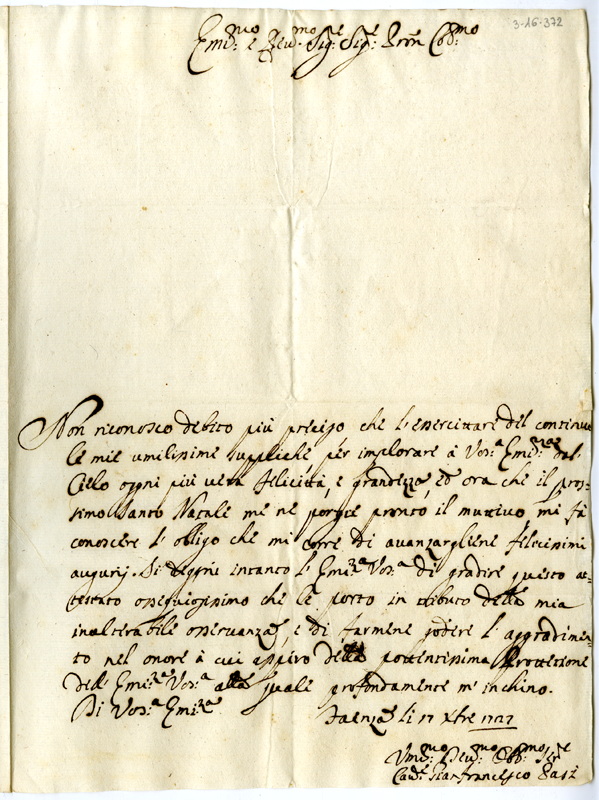 3-16-372
Emi:mo e Reu:mo Sig:e Sig:e Pron Col:mo
Non riconosco debito più preciso che l'esercittare del continuo
le mie umilissime suppliche per implorare à Vos:a Emi:nza dal
Cielo ogni più vera felicittà, e grandezza, ed ora che il pros=
simo Santo Natale me ne porgie pronto il muttivo, mi fà
conoscere l'obligo che mi corre di auanzargliene felicissimi
augurj. Si degni intanto l'Emi:za Vos:a di gradire questo at=
testato ossequiosissimo che le porto in tributo della mia
inalterabile osservanza, e di farmene godere l'aggradimen=
to nel onore à cui aspiro della pottentissima Prottezione
dell'Emi:za Vos:a alla quale profondamente m'inchino.
Di Vos:a Emi:za Faenza li 17 Xbre 1727
Vmi:mo Deu:mo Obb:mo Ser:e
Cau:e Gianfrancesco